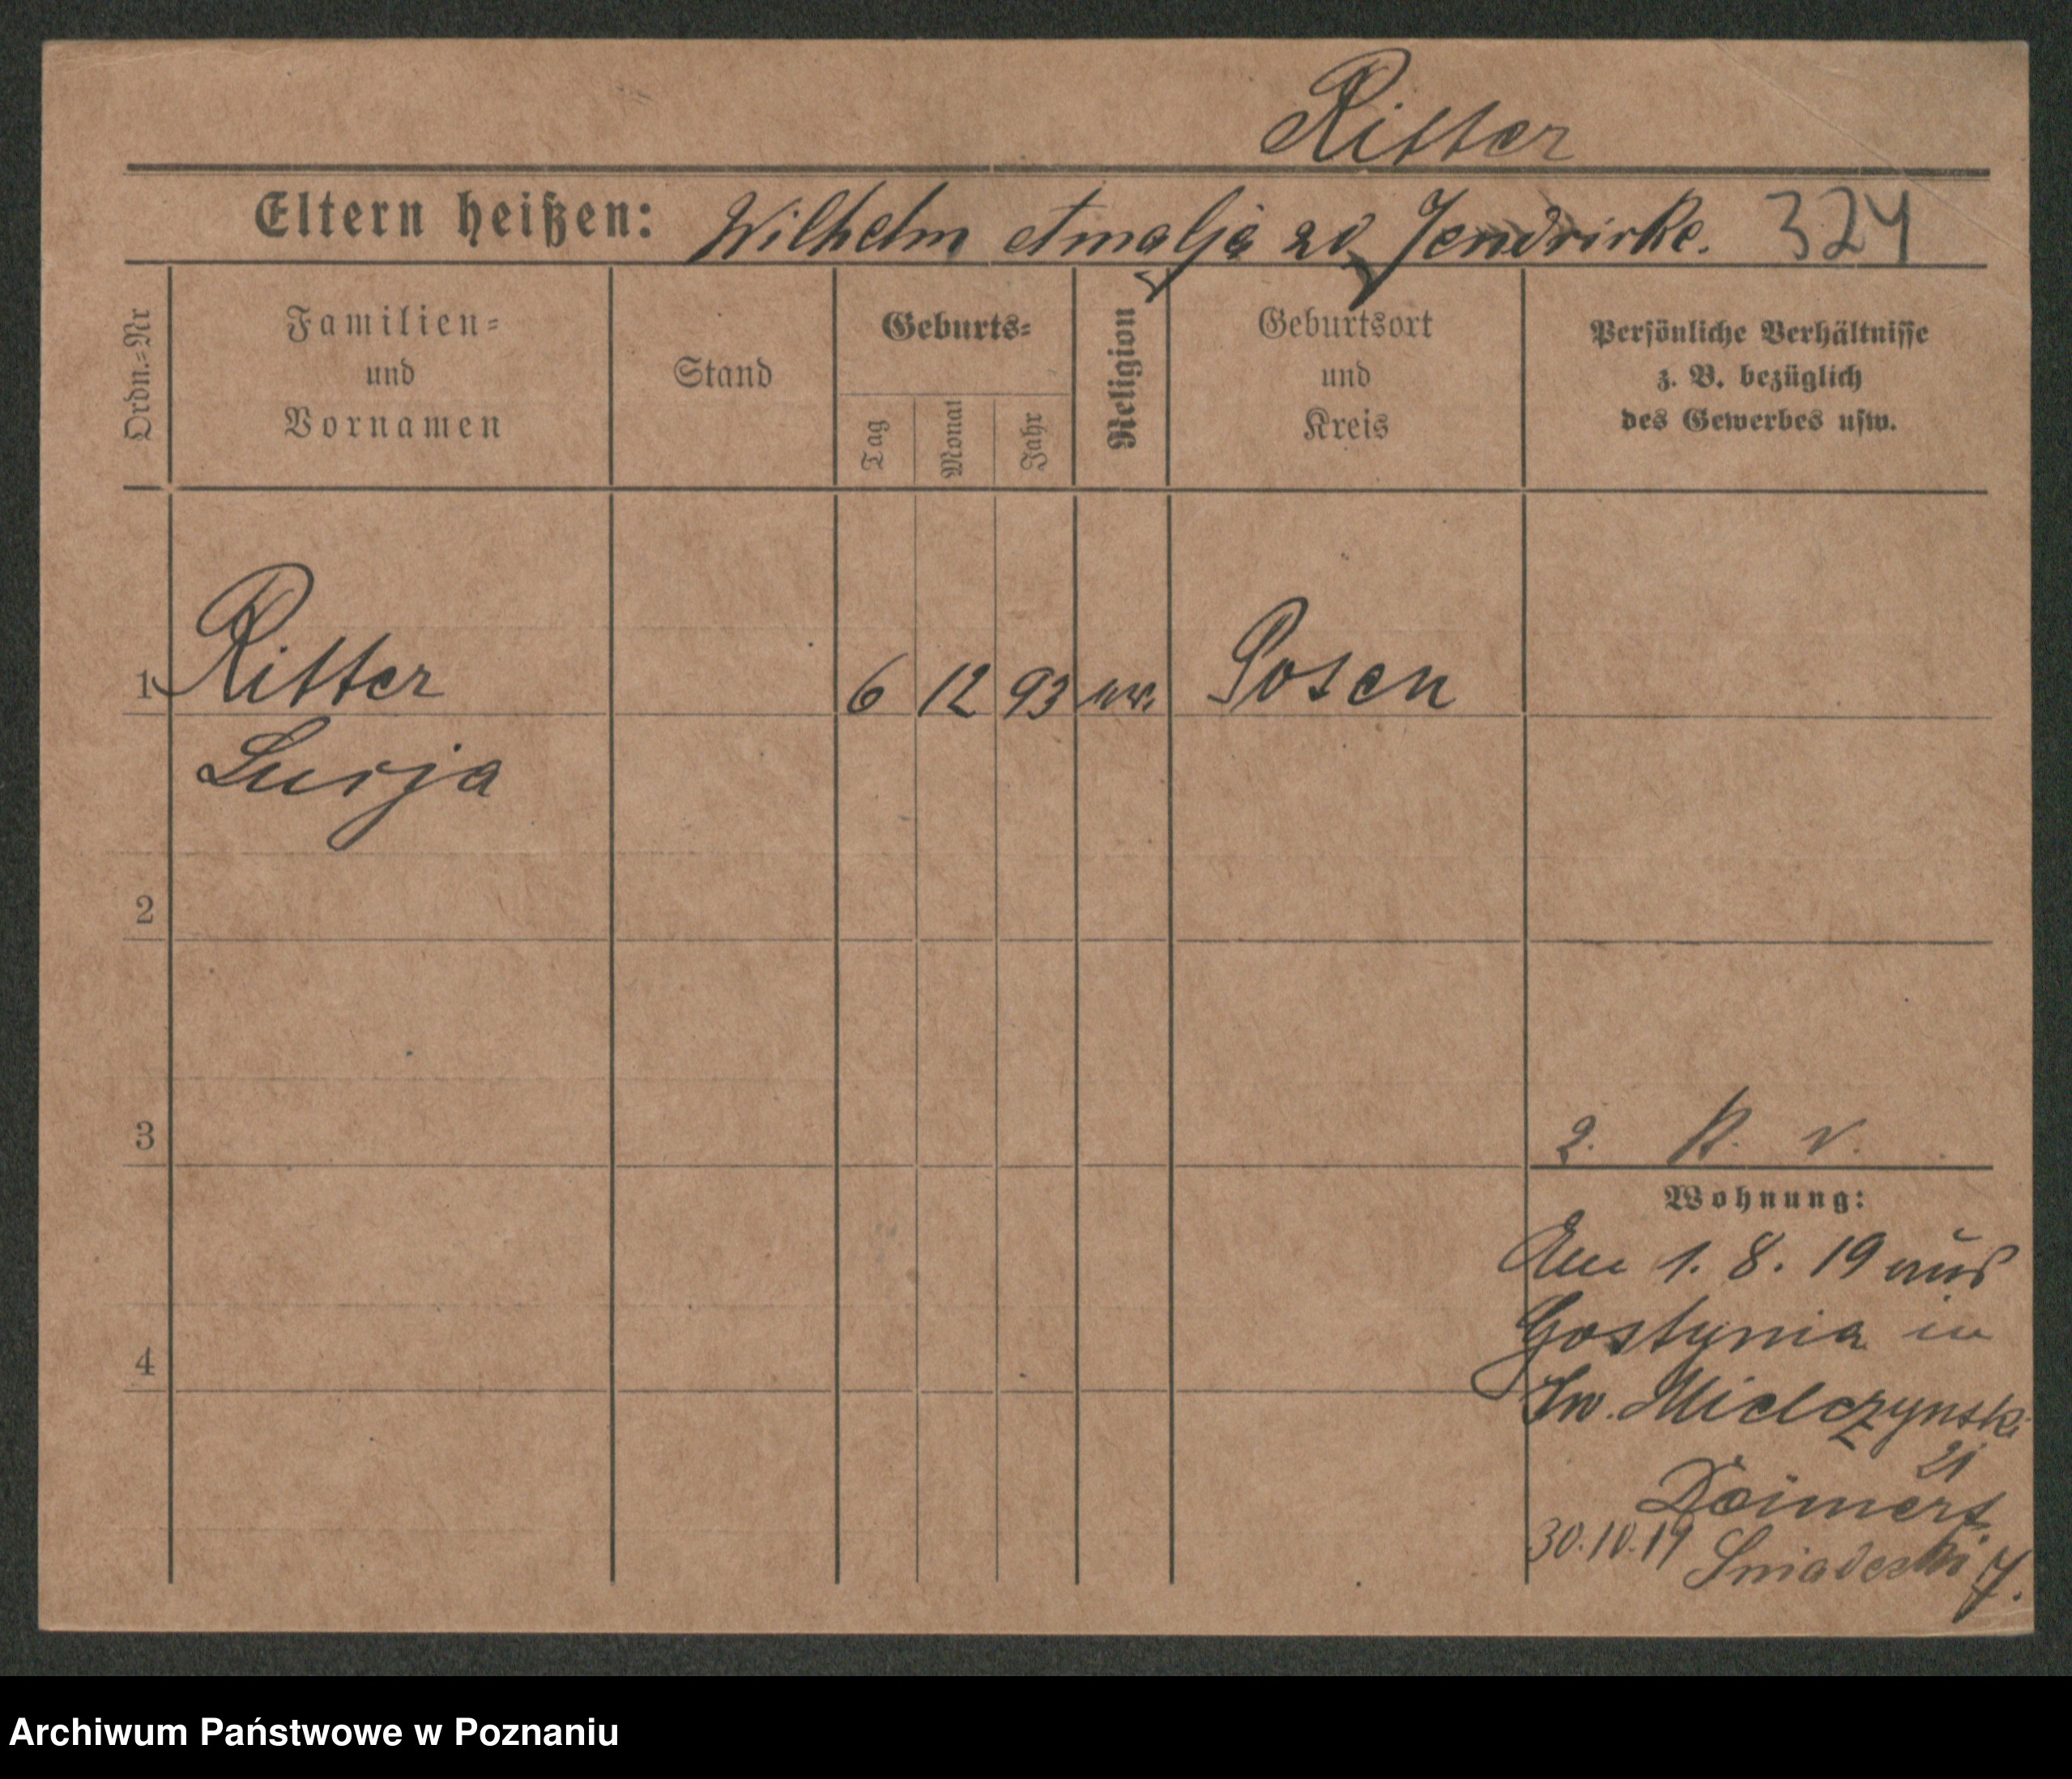 Ritter
Eltern heißen: Wilhelm Amalja zd Jendrirke. 324
Ordn.=Nr
Familien=
und
Vornamen
Stand
Geburts=
Tag
Monat
Jahr
Religion
Geburtsort
und
Kreis
Persönliche Verhältnisse
z. B. bezüglich
des Gewerbes usw.
1 Ritter 6 12 93 ew. Posen
Lusja
2
3
2. K. v.
Wohnung:
Am 1. 8. 19 aus
Gostynia in
4
Sw. Mielczynski
21
30.10.19 Sniadecki 7.
Archiwum Państwowe w Poznaniu